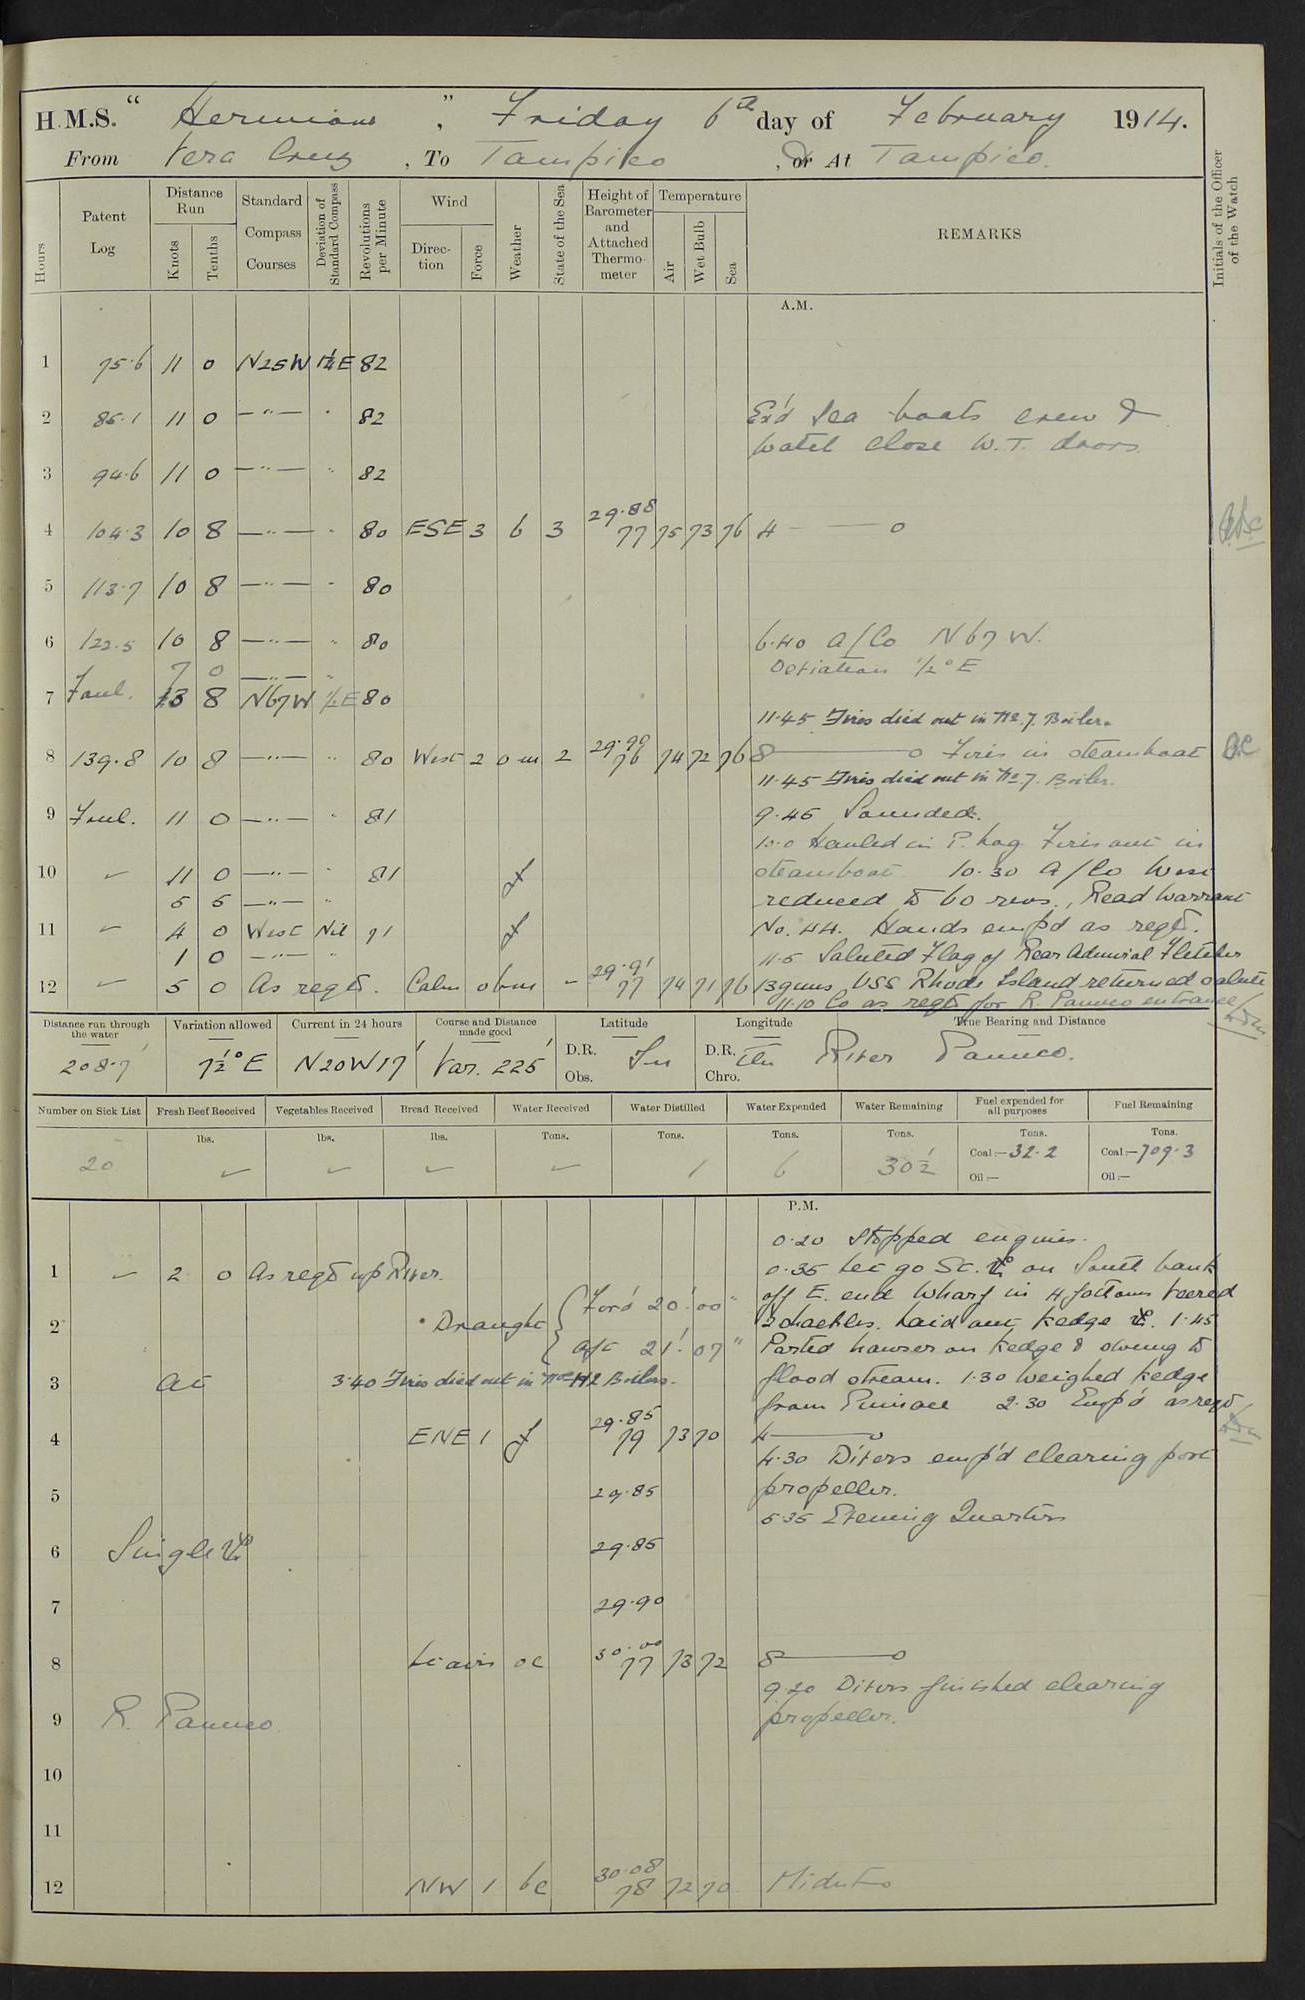 H.M.S. "Hermione", Friday 6th day of February 1914.
From Vera Cruz, To Tampico, or At Tampico.
Hours
Patent Log
Distance Run
Knots
Tenths
Standard Compass Courses
Deviation of Standard Compass
Revolutions per Minute
Wind
Direction
Force
Weather
State of the Sea
Height of Barometer and Attached Thermometer
Temperature
Air
Wet Bulb
Sea
REMARKS
Initials of the Officer of the Watch
A.M.
1 75.6 11 0 N25W 1¼E 82
2 85.1 11 0 —"— " 82 Ex'd Sea boats crew &
watch close W.T. doors
3 94.6 11 0 —"— " 82
4 104.3 10 8 —"— " 80 ESE 3 b 3 29.88 77 75 73 76 4 — 0
5 113.7 10 8 —"— " 80
6 122.5 10 8 —"— " 80 6.40 A/Co N67W.
7 0 —"— " Deviation ½° E
7 Foul. 3 8 N67W ½E 80
11.45 Fires died out in No. 7. Boiler.
8 139.8 10 8 —"— " 80 West 2 om 2 29.90 76 74 72 76 8 — 0 Fires in steamboat
11.45 Fires died out in No. 7. Boiler.
9 Foul. 11 0 —"— " 81 9.45 Sounded.
10.0 Hauled in P. Log Fires out in
10 ✓ 11 0 —"— " 81 steamboat 10.30 A/Co West
5 5 —"— " reduced to 60 revs., Read Warrant
11 ✓ 4 0 West Nil 71 No. 44. Hands emp'd as reqd.
1 0 —"— " 11.5 Saluted Flag of Rear Admiral Fletcher
12 ✓ 5 0 As reqd. Calm obm - 29.91 77 74 71 76 13 guns USS Rhode Island returned salute
11.10 Co as reqd for R. Panuco entrance
Distance run through the water
Variation allowed
Current in 24 hours
Course and Distance made good
Latitude
Longitude
True Bearing and Distance
208.7'
7½° E
N20W 17'
Var. 225'
D.R.
Obs.
D.R.
Chro.
In the River Panuco.
Number on Sick List
Fresh Beef Received
Vegetables Received
Bread Received
Water Received
Water Distilled
Water Expended
Water Remaining
Fuel expended for all purposes
Fuel Remaining
lbs. lbs. lbs. Tons. Tons. Tons. Tons. Tons. Tons.
20 ✓ ✓ ✓ ✓ 1 6 30½ Coal:—32.2 Coal:—709.3
Oil:— Oil:—
P.M.
0.20 Stopped engines.
1 ✓ 2 0 As reqd up River. 0.35 Let go St. ⚓ on South bank
Draught { For'd 20' 00" off E. end Wharf in 4 fathoms veered
2 3 shackles. Laid out kedge ⚓. 1.45
Aft 21' 07" Parted hawser on kedge & swung to
3 At 3.40 Fires died out in Nos 1&2 Boilers. flood stream. 1.30 Weighed kedge
from Pinnace 2.30 Emp'd as reqd
4 ENE 1 29.85 79 73 70 4 — 0
4.30 Divers emp'd clearing port
5 29.85 propeller.
5.35 Evening Quarters
6 Single ⚓ 29.85
7 29.90
8 Lt airs oc 30.00 77 73 72 8 — 0
9.20 Divers finished clearing
9 R. Panuco propeller.
10
11
12 NW 1 bc 30.08 78 72 70 Midnt